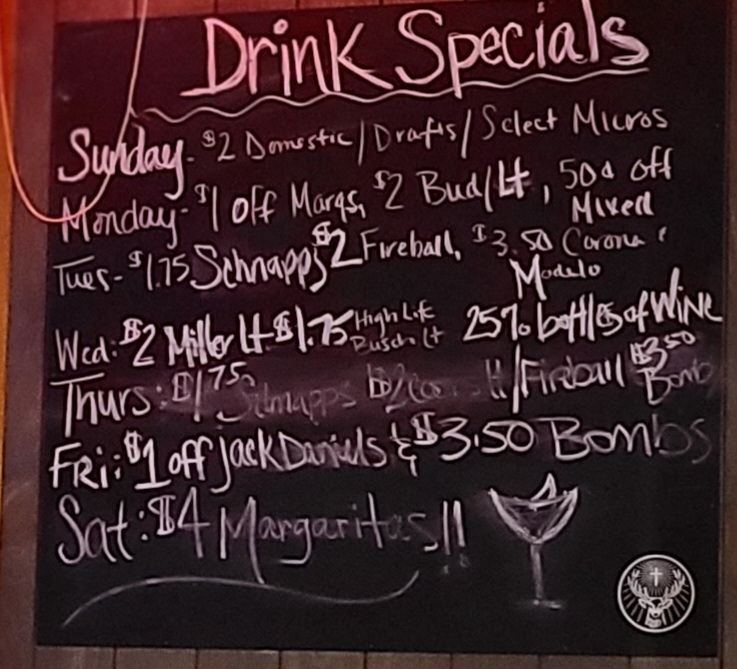 Drink Specials
Sunday - $2 Domestic/Drafts/Select Micros
Monday - $1 off Margs, $2 Bud/Lt, 50¢ off Mixed
Tues - $1.75 Schnapps $2 Fireball, $3.50 Corona & Modelo
Wed: $2 Miller Lt $1.75 High Life Busch Lt 25% bottles of WiNE
Thurs: $1.75 Schnapps $2 Coors lt/Fireball $3.50 Bomb
FRi: $1 off Jack Daniels & $3.50 Bombs
Sat: $4 Margaritas!!